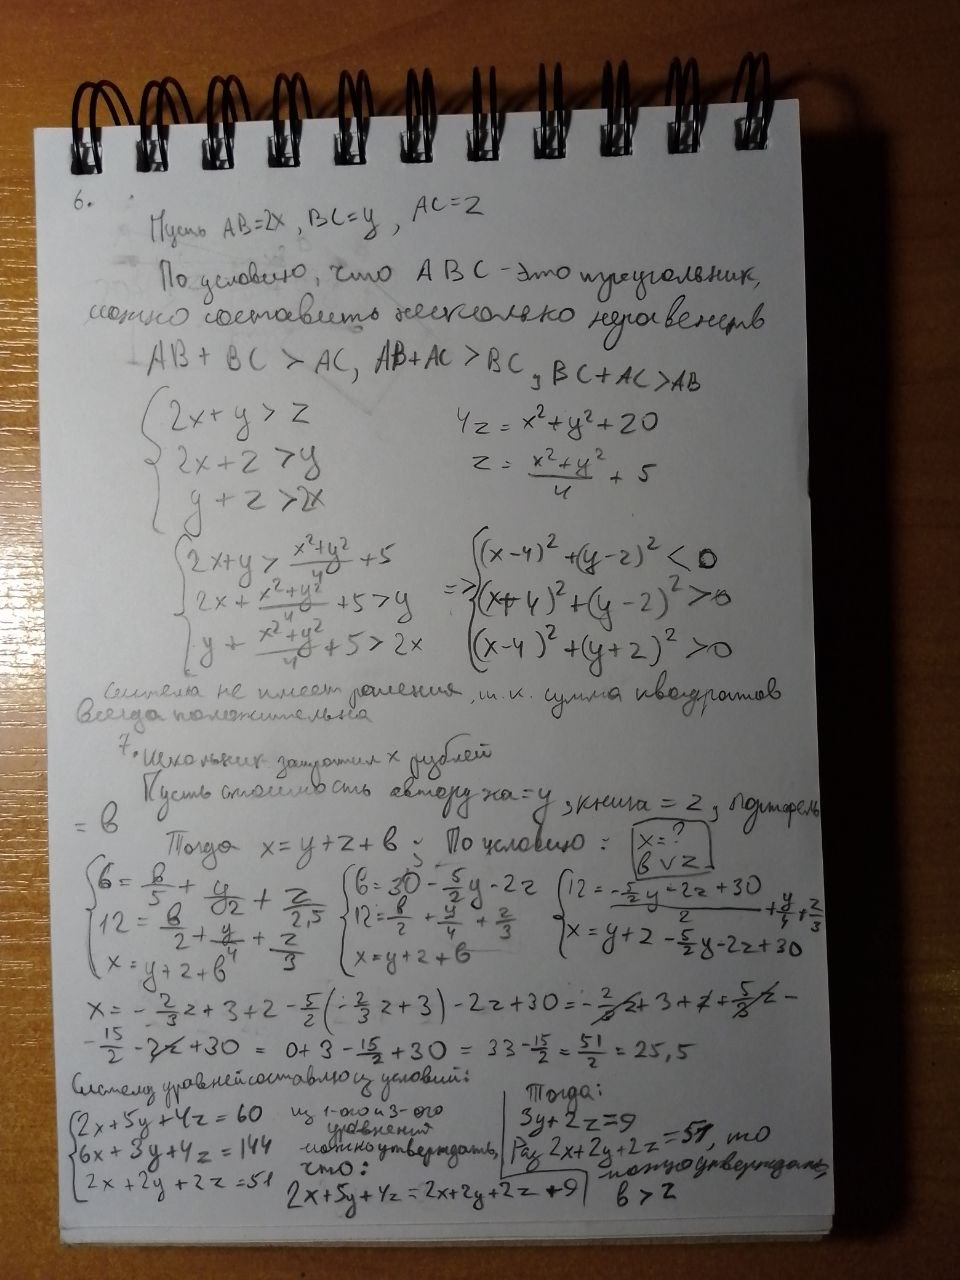 6.
Пусть AB=2x, BC=y, AC=z
По условию, что ABC - это треугольник,
можно составить несколько неравенств
AB + BC > AC, AB+AC > BC, BC+AC>AB
2x+y > z
2x+z >y
y+z >2x
4z = x²+y²+20
z = (x²+y²)/4 + 5
2x+y > (x²+y²)/4 +5
2x + (x²+y²)/4 +5 >y
y + (x²+y²)/4 +5 > 2x
=> (x-4)² +(y-2)² < 0
(x+4)²+(y-2)² >0
(x-4)² +(y+2)² >0
Система не имеет решения, т.к. сумма квадратов
всегда положительна
7. Школьник затратил x рублей
Пусть стоимость авторучки=y, книга = z, портфель
= b
Тогда x=y+z+b; По условию: x=? b v z
6 = b/5 + y/2 + z/2,5
12 = b/2 + y/4 + z/3
x = y+z+b
b=30 - 5/2y -2z
12= b/2 + y/4 + z/3
x=y+z+b
12 = (-5/2y -2z +30)/2 + y/4 + z/3
x = y+z - 5/2y -2z+30
x = - 2/3z + 3 + z - 5/2(-2/3z +3) - 2z +30 = - 2/3z + 3 + z + 5/3z -
- 15/2 - 2z +30 = 0+ 3 - 15/2 + 30 = 33 - 15/2 = 51/2 = 25,5
Систему уравнений составлю из условий:
2x+5y+4z=60
6x+3y+4z=144
2x+2y+2z=51
из 1-ого и 3-ого
уравнений
можно утверждать,
что:
2x+5y+4z=2x+2y+2z+9
Тогда:
3y+2z=9
Раз 2x+2y+2z=51, то
можно утверждать,
b > z